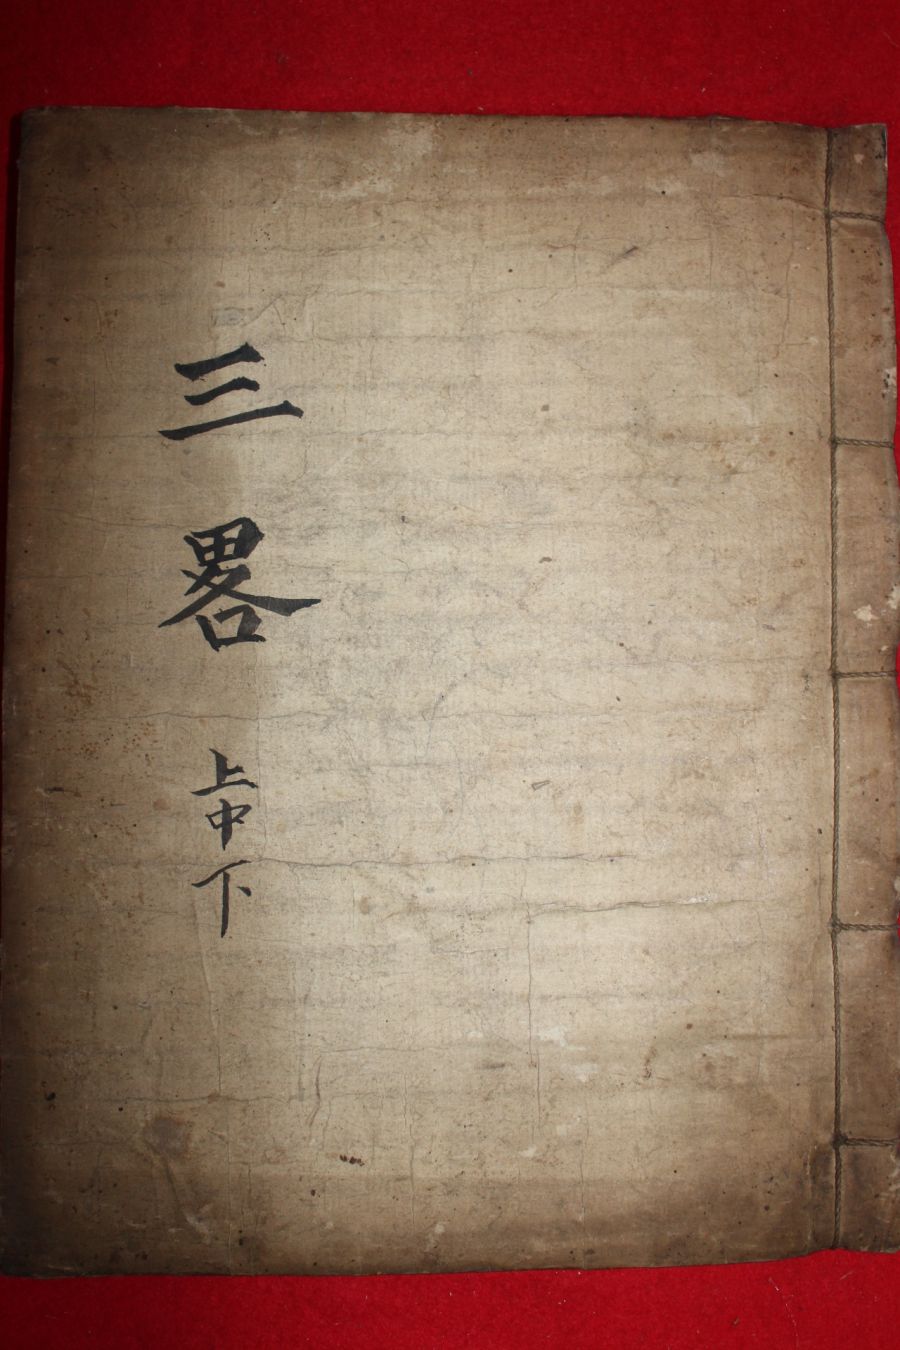 三畧 上中下